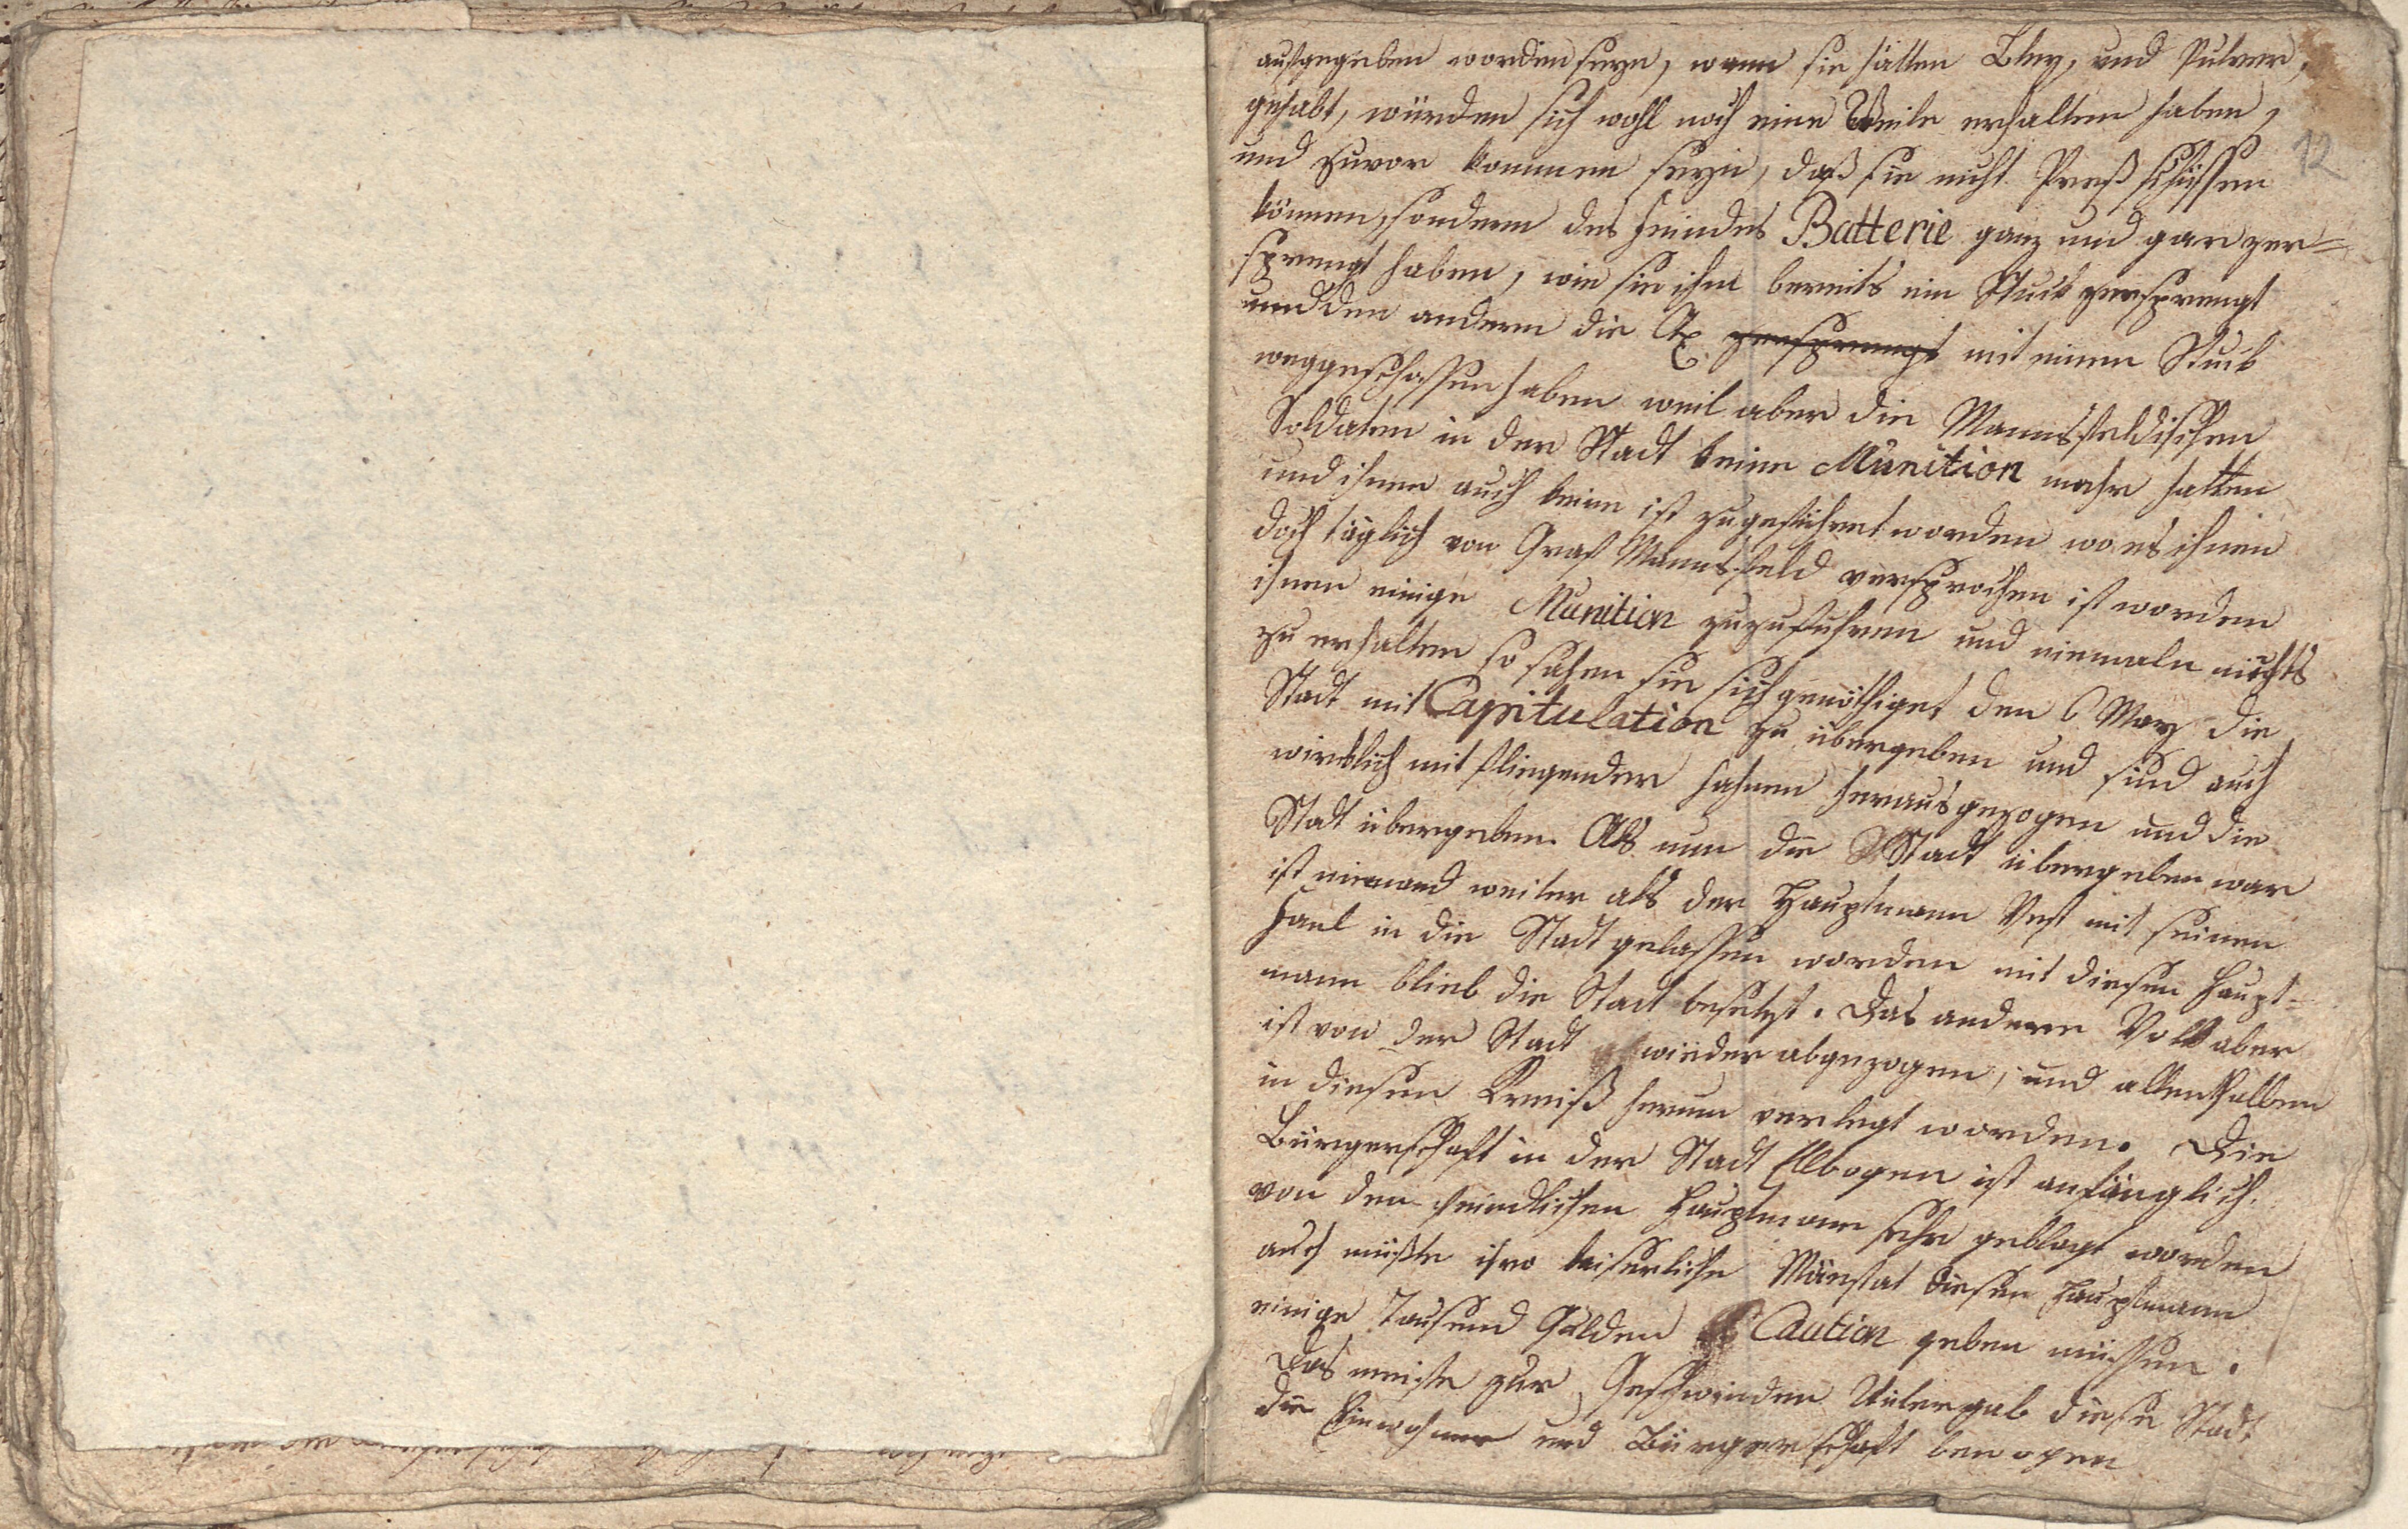 aufgegeben worden seyn, wenn sie hätten Bley, und Pulver,
gehabt, würden sich wohl noch eine Weile erhalten haben,
12
und zuvor kommen seyn, daß sie nicht Preß schüssen
können, sondern des Feindes Batterie ganz und gar zer=
sprengt haben, wie sie ihm bereits ein Stuck zersprengt
und den andern die Ax zersprengt mit einen Stuck
weggeschossen haben weil aber die Mannsfeldischen
Soldaten in der Stadt keine Munition mehr hatten
und ihnen auch keine ist zugeführet worden wo es ihnen
doch täglich von Graf Mannsfeld versprochen ist worden
ihnen einige Munition zuzuführen und niemaln nichts
zu erhalten so sahen sie sich genöthiget den 6 May die
Stadt mit Capitulation zu übergeben und sind auch
wircklich mit fliegender Fahnen herausgezogen und die
Stadt übergeben. Als nun die Stadt übergeben war
ist niemand weiter als der Hauptmann Vest mit seinen
Fanl in die Stadt gelassen worden mit diesen Haupt=
mann blieb die Stadt besetzt. Das andere Volk aber
ist von der Stadt wieder abgezogen, und allenthalben
in diesen Kreiß herum verlegt worden. Die
Bürgerschaft in der Stadt Ellbogen ist anfänglich
von den feindlichen Hauptmann sehr geblagt worden
auch müßte ihro keiserliche Mäestat diesen Hauptmann
einige Tausend Gulden Caution geben müssen.
Das meiste zur Geschwinden Uibergab diese Stadt
die Einwohner und Bürgerschaft bewogen